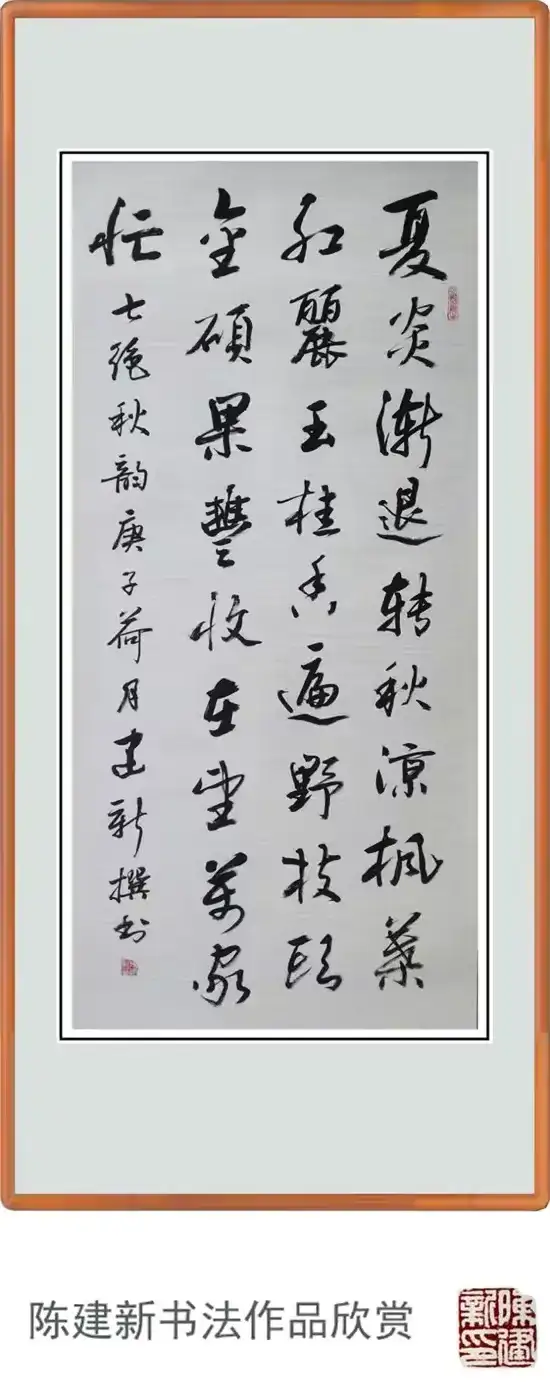 夏炎渐退转秋涼枫葉
红麗玉桂香遍野枝头
金硕果豐收在望萬家
忙
七绝秋韵庚子荷月建新撰书
陈建新书法作品欣赏
陳建新印